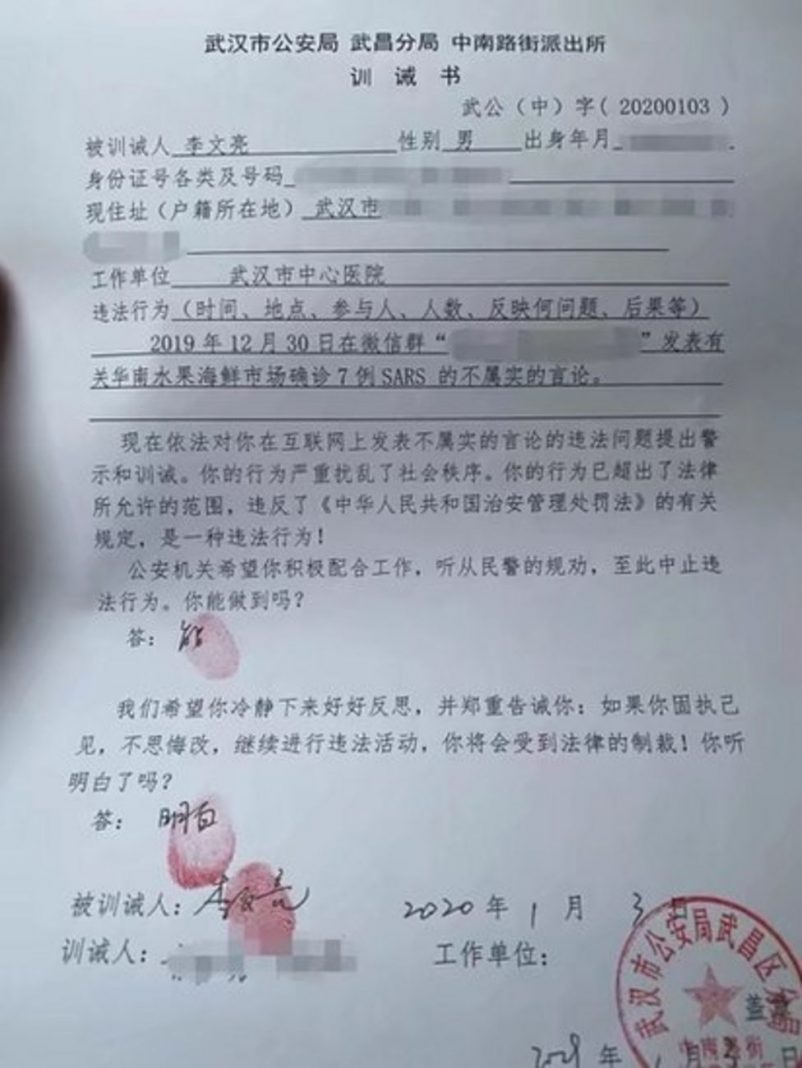 武汉市公安局 武昌分局 中南路街派出所
训 诫 书
武公（中）字( 20200103 )
被训诫人 李文亮 性别 男 出身年月
身份证号各类及号码
现住址（户籍所在地） 武汉市
工作单位 武汉市中心医院
违法行为（时间、地点、参与人、人数、反映何问题、后果等）
2019 年 12 月 30 日在微信群“ ”发表有
关华南水果海鲜市场确诊 7 例 SARS 的不属实的言论。
现在依法对你在互联网上发表不属实的言论的违法问题提出警
示和训诫。你的行为严重扰乱了社会秩序。你的行为已超出了法律
所允许的范围，违反了《中华人民共和国治安管理处罚法》的有关
规定，是一种违法行为！
公安机关希望你积极配合工作，听从民警的规劝，至此中止违
法行为。你能做到吗？
答： 能
我们希望你冷静下来好好反思，并郑重告诫你：如果你固执己
见，不思悔改，继续进行违法活动，你将会受到法律的制裁！你听
明白了吗？
答： 明白
被训诫人：李文亮 2020 年 1 月 3 日
训诫人： 工作单位：
武汉市公安局武昌区分局
中南路街
盖章
年 1 月 3 日